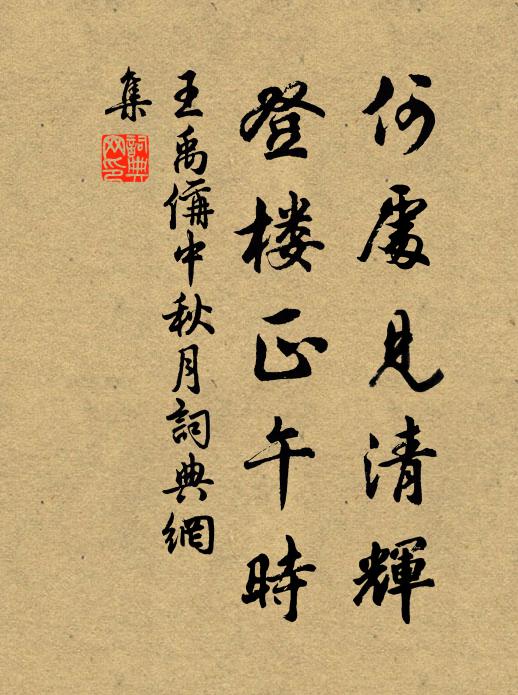 何處見清輝
登楼正午時
王禹偁中秋月詞典網
集
詞典
网印